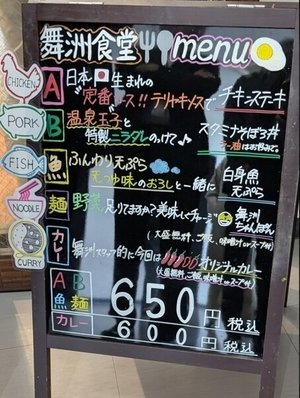 舞洲食堂 menu
CHICKEN
A 日本生まれの
"定番"ソース!! テリヤキソースで チキンステーキ
PORK
B 温泉玉子と スタミナそぼろ丼
特製ニラダレのっけて♪ ラー油はお好みで。
FISH
魚 ふんわり天ぷら
むつゆ味のおろしと一緒に 白身魚天ぷら
NOODLE
麺 野菜、足りてますか?美味しくチャージ 舞洲ちゃんぽん
(大盛無料、ご飯、味噌汁orスープ付)
CURRY
カレー 舞洲スタッフ的に今回は オリジナルカレー
(大盛無料、ご飯、味噌汁orスープ付)
A B
魚 麺 650円 税込
カレー 600円 税込